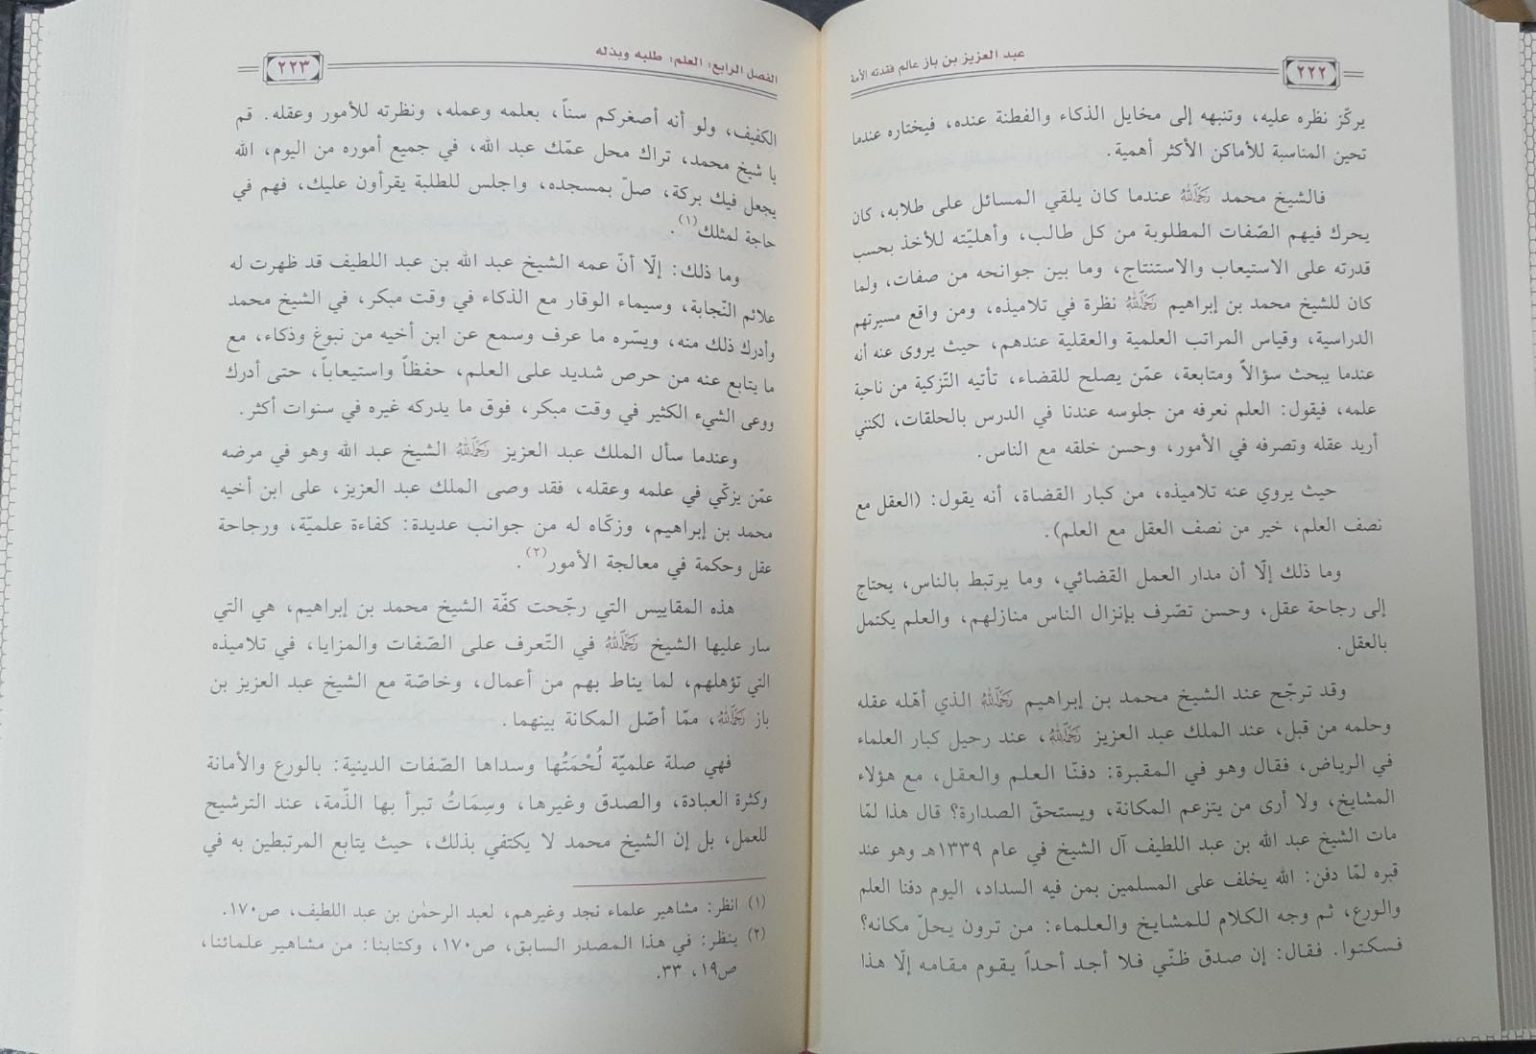 عبد العزيز بن باز عالم فقدته الأمة
٢٢٢
يركّز نظره عليه، وتنبهه إلى مخايل الذكاء والفطنة عنده، فيختاره عندما
تحين المناسبة للأماكن الأكثر أهمية.
فالشيخ محمد رَحِمَهُ اللهُ عندما كان يلقي المسائل على طلابه، كان
يحرك فيهم الصّفات المطلوبة من كل طالب، وأهليّته للأخذ بحسب
قدرته على الاستيعاب والاستنتاج، وما بين جوانحه من صفات، ولما
كان للشيخ محمد بن إبراهيم رَحِمَهُ اللهُ نظرة في تلاميذه، ومن واقع مسيرتهم
الدراسية، وقياس المراتب العلمية والعقلية عندهم، حيث يروى عنه أنه
عندما يبحث سؤالاً ومتابعة، عمّن يصلح للقضاء، تأتيه التّزكية من ناحية
علمه، فيقول: العلم نعرفه من جلوسه عندنا في الدرس بالحلقات، لكنني
أريد عقله وتصرفه في الأمور، وحسن خلقه مع الناس.
حيث يروي عنه تلاميذه، من كبار القضاة، أنه يقول: (العقل مع
نصف العلم، خير من نصف العقل مع العلم).
وما ذلك إلّا أن مدار العمل القضائي، وما يرتبط بالناس، يحتاج
إلى رجاحة عقل، وحسن تصّرف بإنزال الناس منازلهم، والعلم يكتمل
بالعقل.
وقد ترجّح عند الشيخ محمد بن إبراهيم رَحِمَهُ اللهُ الذي أهّله عقله
وحلمه من قبل، عند الملك عبد العزيز رَحِمَهُ اللهُ، عند رحيل كبار العلماء
في الرياض، فقال وهو في المقبرة: دفنّا العلم والعقل، مع هؤلاء
المشايخ، ولا أرى من يتزعم المكانة، ويستحقّ الصدارة؟ قال هذا لمّا
مات الشيخ عبد الله بن عبد اللطيف آل الشيخ في عام ١٣٣٩هـ وهو عند
قبره لمّا دفن: الله يخلف على المسلمين بمن فيه السداد، اليوم دفنا العلم
والورع، ثم وجه الكلام للمشايخ والعلماء: من ترون يحلّ مكانه؟
فسكتوا. فقال: إن صدق ظنّي فلا أجد أحداً يقوم مقامه إلّا هذا
الفصل الرابع: العلم؛ طلبه وبذله
٢٢٣
الكفيف، ولو أنه أصغركم سناً، بعلمه وعمله، ونظرته للأمور وعقله. قم
يا شيخ محمد، تراك محل عمّك عبد الله، في جميع أموره من اليوم، الله
يجعل فيك بركة، صلّ بمسجده، واجلس للطلبة يقرأون عليك، فهم في
حاجة لمثلك(١).
وما ذلك: إلّا أنّ عمه الشيخ عبد الله بن عبد اللطيف قد ظهرت له
علائم النّجابة، وسيماء الوقار مع الذكاء في وقت مبكر، في الشيخ محمد
وأدرك ذلك منه، ويسّره ما عرف وسمع عن ابن أخيه من نبوغ وذكاء، مع
ما يتابع عنه من حرص شديد على العلم، حفظاً واستيعاباً، حتى أدرك
ووعى الشيء الكثير في وقت مبكر، فوق ما يدركه غيره في سنوات أكثر.
وعندما سأل الملك عبد العزيز رَحِمَهُ اللهُ الشيخ عبد الله وهو في مرضه
عمّن يزكّي في علمه وعقله، فقد وصى الملك عبد العزيز، على ابن أخيه
محمد بن إبراهيم، وزكّاه له من جوانب عديدة: كفاءة علميّة، ورجاحة
عقل وحكمة في معالجة الأمور(٢).
هذه المقاييس التي رجّحت كفّة الشيخ محمد بن إبراهيم، هي التي
سار عليها الشيخ رَحِمَهُ اللهُ في التّعرف على الصّفات والمزايا، في تلاميذه
التي تؤهلهم، لما يناط بهم من أعمال، وخاصّة مع الشيخ عبد العزيز بن
باز رَحِمَهُ اللهُ، ممّا أصّل المكانة بينهما.
فهي صلة علميّة لُحْمَتُها وسداها الصّفات الدينية: بالورع والأمانة
وكثرة العبادة، والصدق وغيرها، وسِمَاتُ تبرأ بها الذّمة، عند الترشيح
للعمل، بل إن الشيخ محمد لا يكتفي بذلك، حيث يتابع المرتبطين به في
(١) انظر: مشاهير علماء نجد وغيرهم، لعبد الرحمٰن بن عبد اللطيف، ص١٧٠.
(٢) ينظر: في هذا المصدر السابق، ص١٧٠، وكتابنا: من مشاهير علمائنا،
ص١٩، ٣٣.